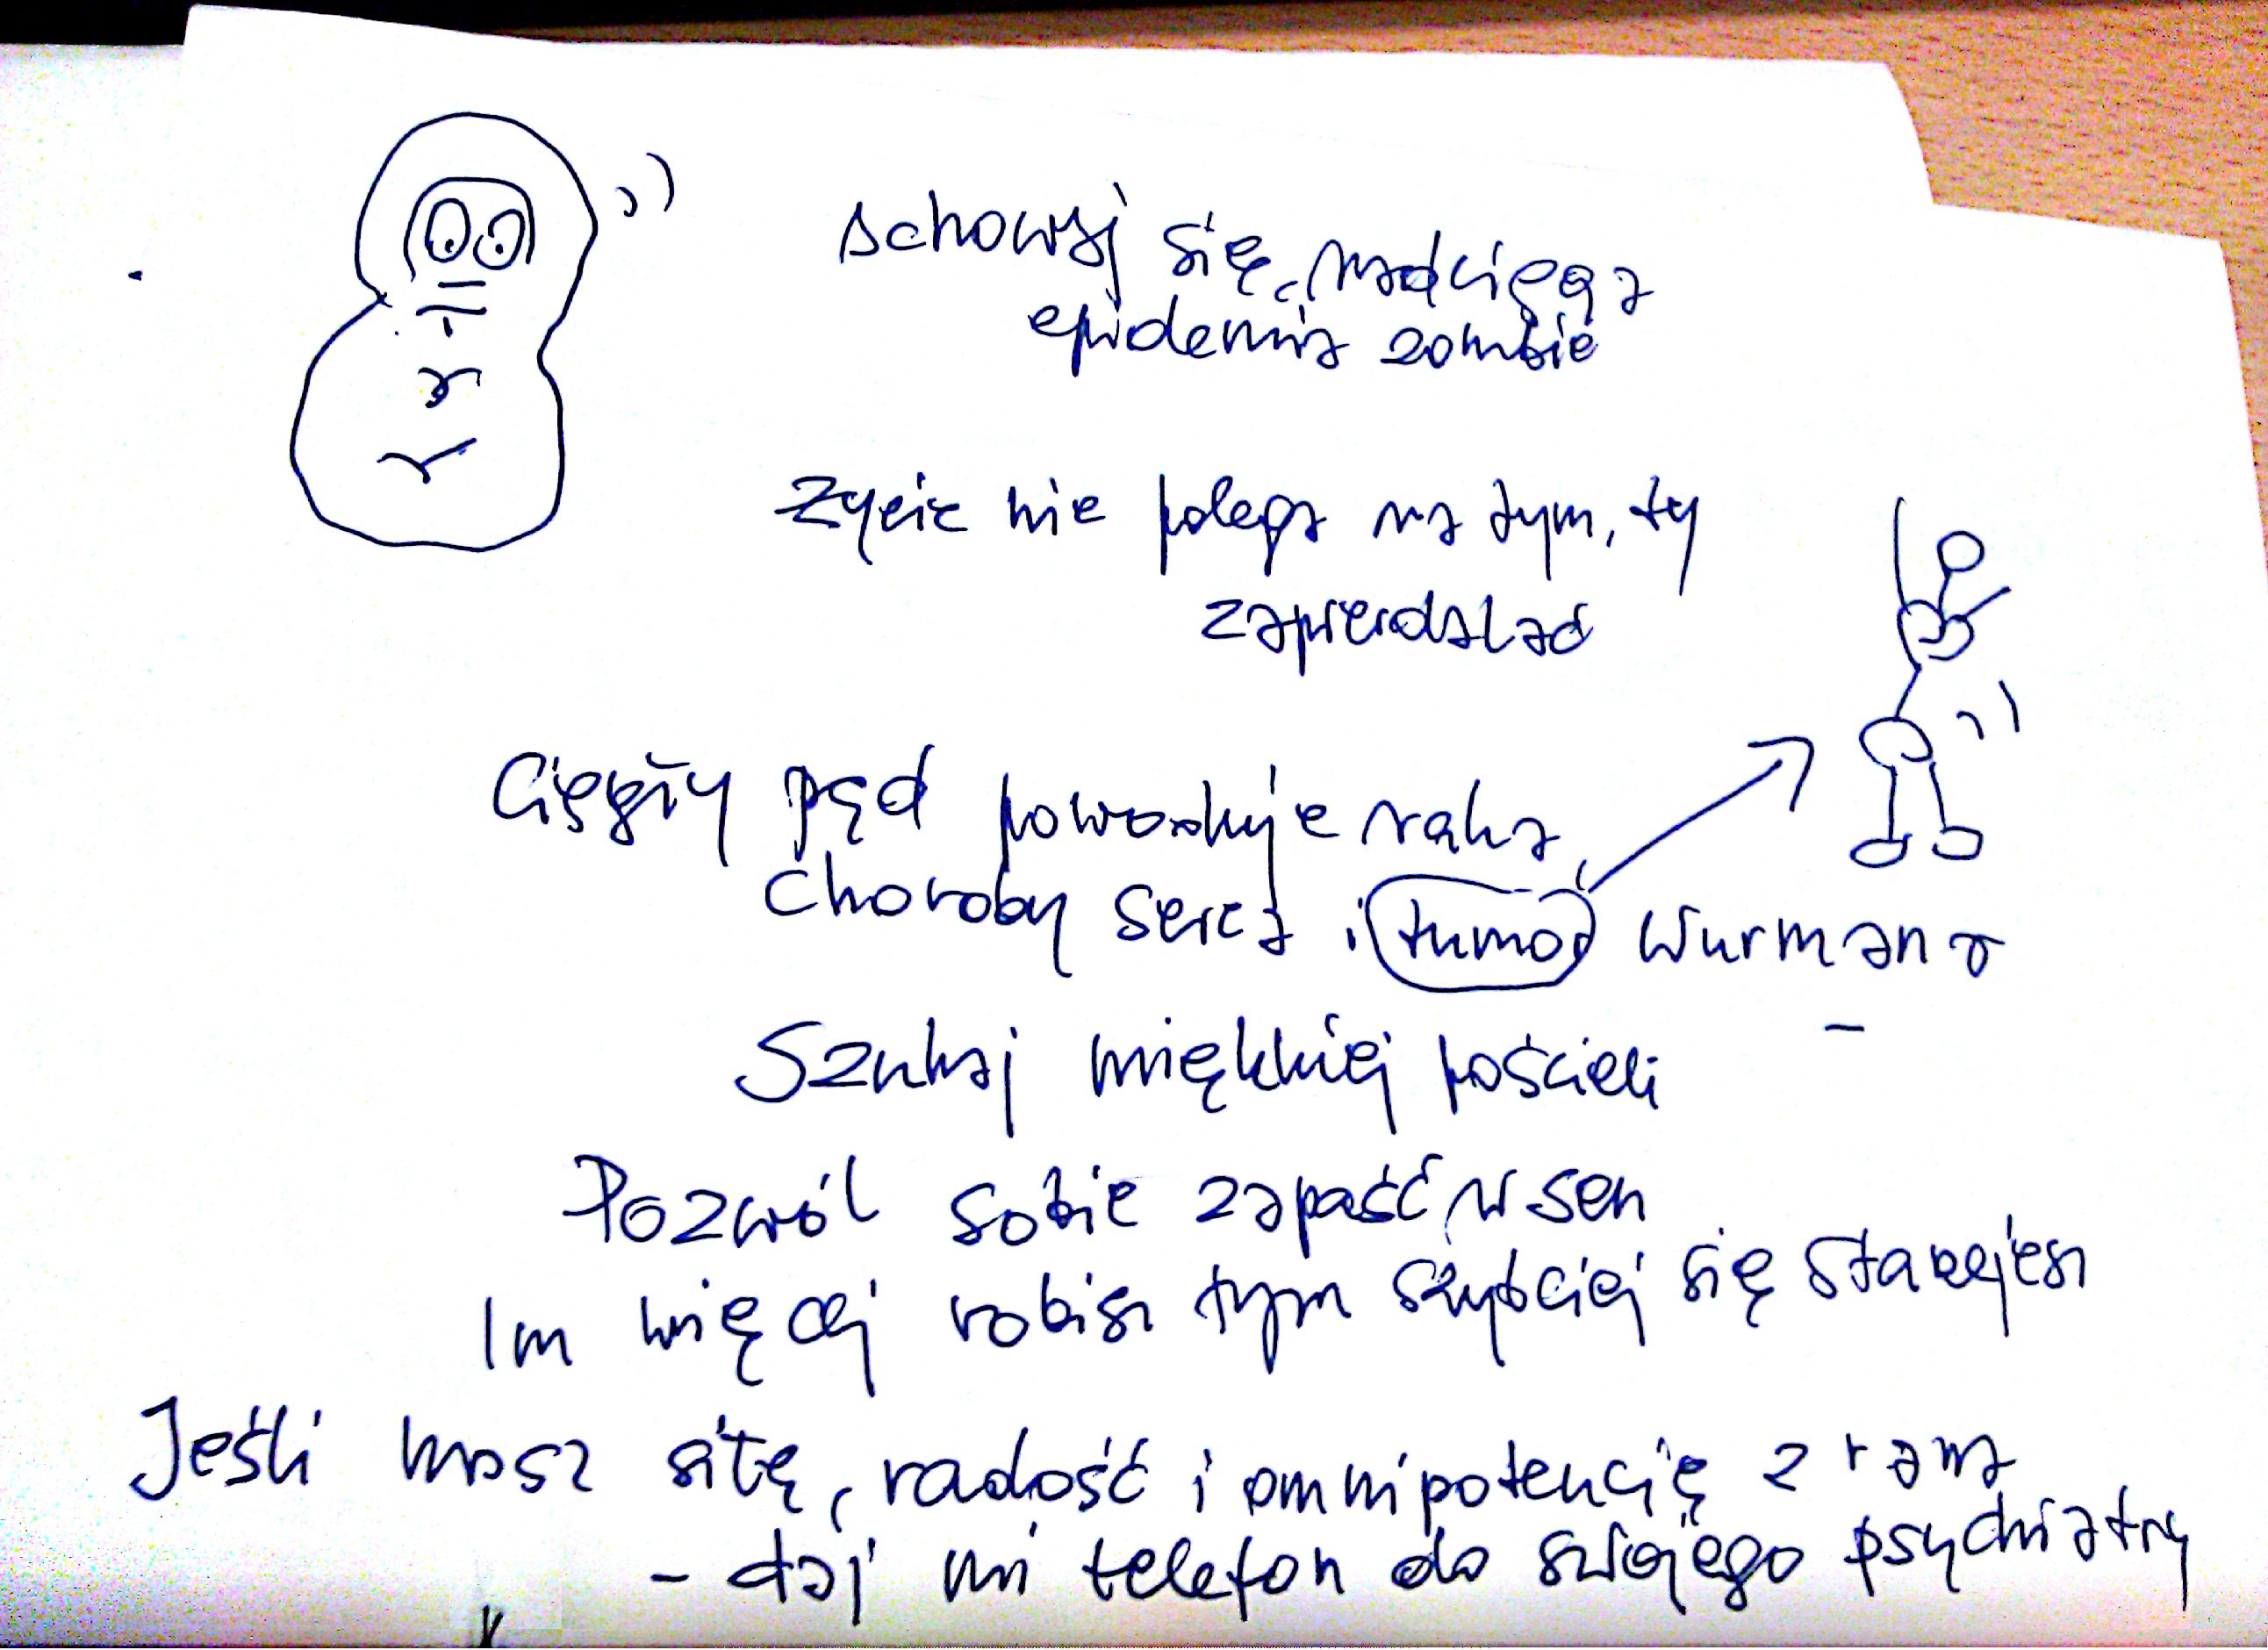 schowaj się, nadciąga
epidemia zombie
Życie nie polega na tym, ty
zapierdalać
Ciągły pęd powoduje raka,
choroby serca i tumor wurmana
Szukaj miękkiej pościeli
Pozwól sobie zapaść w sen
Im więcej robisz tym szybciej się starzejesz
Jeśli masz siłę, radość i omnipotencję z rana
- daj mi telefon do swojego psychiatry